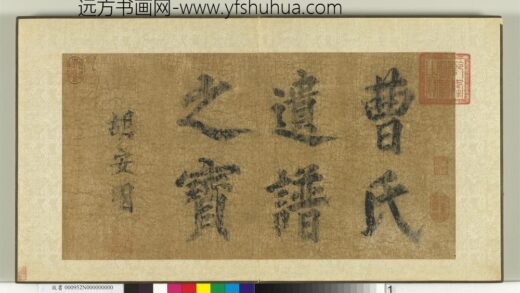 远方书画网-www.yfshuhua.com
曹氏
遺譜
之寳
胡安國
故書 000952N000000000
1